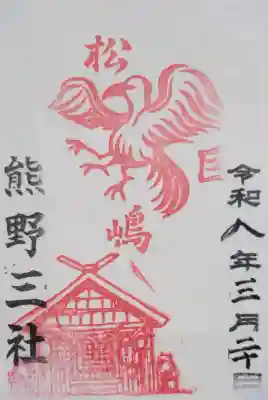 令和八年三月二十日
松嶋
熊野三社